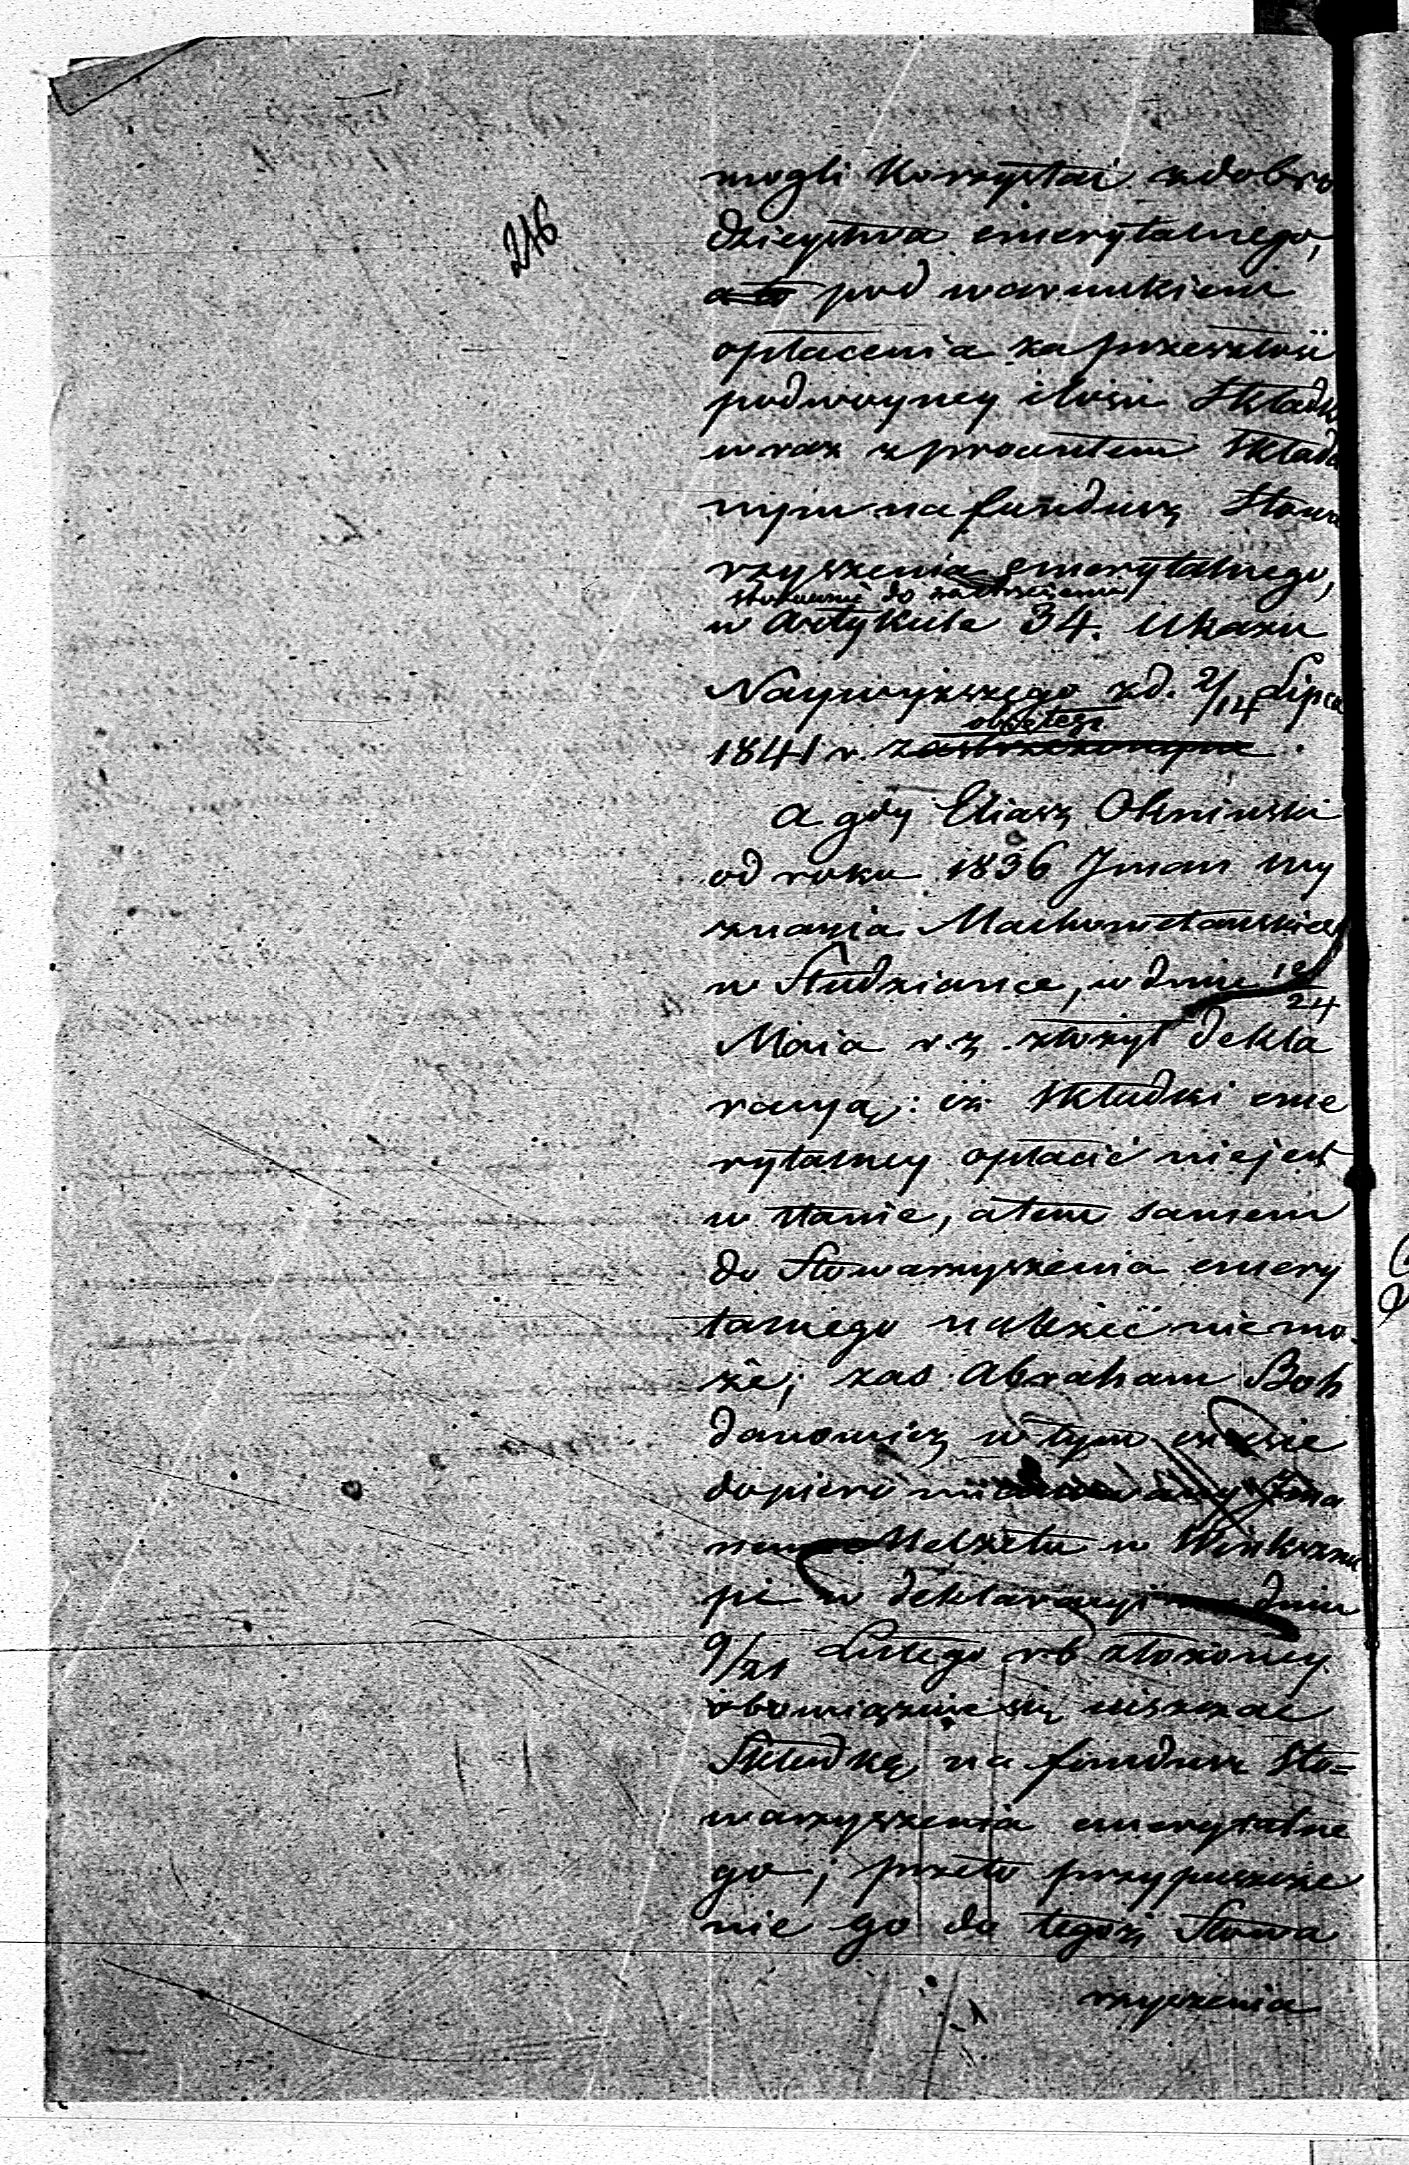 216
mogli korzystać z dobro
dzieystwa emerytalnego,
a to pod warunkiem
opłacenia za przeszłość
podwoyney ilości składk
wraz z procentem składa
nym na fundusz Stowa
rzyszenia emerytalnego,
stosownie do zastrzeżenia
w Artykule 34. Ukazu
Naywyższego z d. 2/14 Lipca
objętego
1841 r. zastrzeżonym.
A gdy Eliasz Oleninski
od roku 1836 Jman wy
znania Machometańskiego
w Studziance, w dniu 12/24
Maia r. z. złożył dekla
racyą: iż składki eme
rytalney opłacić niejest
w stanie, a tem samem
do Stowarzyszenia emery
talnego należéć niemo
że; zaś Abraham Boh
danowicz w tym czasie
dopiero Jma
nem Meczetu w Winksznu
pi w deklaracyi dniu
9/21 Lutego r. b. złożoney
obowiązuie się uiszczać
Składkę na fundusz Sto=
warzyszenia emerytalne
go; przeto przypuszcze
nie go do tegoż Stowa
rzyszenia